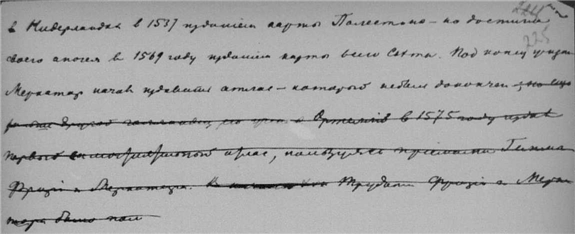 225
в Нидерландах в 1537 изданием карты Палестины – но достигла
своего апогея в 1569 году изданием карты всего Света. Под конец жизни
Меркатор начал издавать атлас – который не был докончен
другой голландец Ортелий в 1575 году издал
первый атлас, пользуясь трудами Гемма
Фризи и Меркатора. трудами Фризи и Мерка
тора было пол